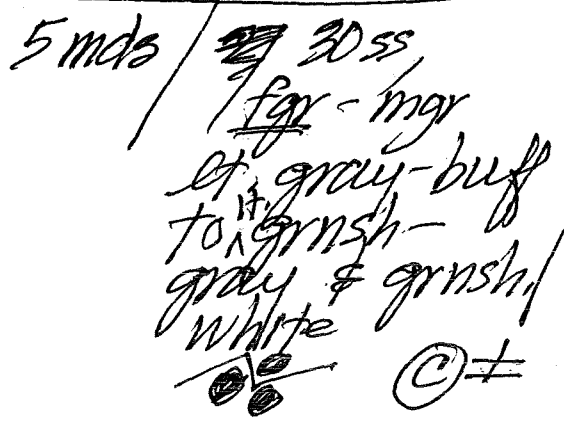 5 mds / 30 ss,
fgr - mgr
lt. gray-buff
to lt. grnsh-
gray & grnsh/
white
C ±